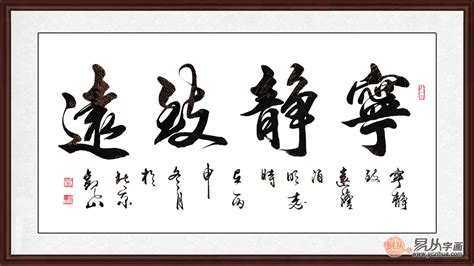 寧靜致遠
寧静
致
遠澹
泊
明志
時
在丙
申
冬月
於
北京
易从字画
www.yczihua.com